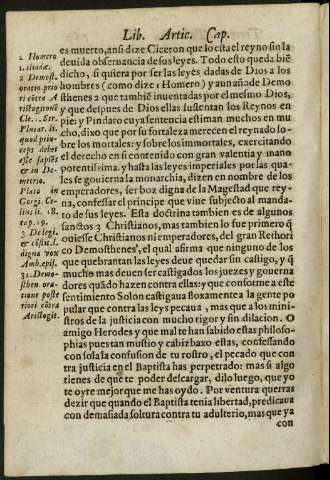 Lib. Artic. Cap.
es muerto, ansi dize Ciceron que lo esta el reyno sin la
deuida obseruancia de sus leyes. Todo esto queda biẽ
dicho, si quiera por ser las leyes dadas de Dios a los
hombres (como dize 1 Homero) y aun añade Demo
sthenes 2 que tambiẽ inuentadas por el mesmo Dios,
y que despues de Dios ellas sustentan los Reynos en
pie: y Pindaro cuya sentencia estiman muchos en mu
cho, dixo que por su fortaleza merecen el reynado so-
bre los mortales: y sobre los immortales, exercitando
el derecho en si contenido con gran valentia y mano
potentissima, y hasta las leyes imperiales por las qua-
les se gouierna la monarchia, dizen en nombre de los
emperadores, ser boz digna de la Magestad que rey-
na, confessar el principe que viue subjecto al manda-
to de sus leyes. Esta doctrina tambien es de algunos
sanctos 3 Christianos, mas tambien lo fue primero q̃
ouiesse Christianos ni emperadores, del gran Rethori
co Demosthenes 4, el qual afirma que ninguno de los
que quebrantan las leyes deue quedar sin castigo, y q̃
mucho mas deuen ser castigados los juezes y gouerna
dores quãdo hazen contra ellas: y que conforme a este
sentimiento Solon castigaua floxamente a la gente po
pular que contra las leyes pecaua, mas que a los mini-
stros de la justicia con mucho rigor y sin dilacion. O
amigo Herodes y que mal te han sabido estas philoso-
phias pues tan mustio y cabizbaxo estas, confessando
con sola la confusion de tu rostro, el pecado que con
tra justicia en el Baptista has perpetrado: mas si algo
tienes de que te poder descargar, dilo luego, que yo
te oyre mejor que me has oydo. Por ventura querras
dezir que quando el Baptista tenia libertad, predicaua
con demasiada soltura contra tu adulterio, mas que ya
con
1 Homero
1. iliadæ.
2 Demost.
oratio prio
ri cõtra A
ristogitonẽ
Cle. 1. Str.
Plutar. li.
quod prin-
ceps debet
esse sapiẽs
& in De-
metrio.
Plato in
Gorgi. Ce-
lius li. 18.
cap. 19.
3 De legi.
& cõstit. l.
digna vox
Amb. epis.
31. Demo-
sthen ora-
tione poste
riori cõtra
Aristogit.